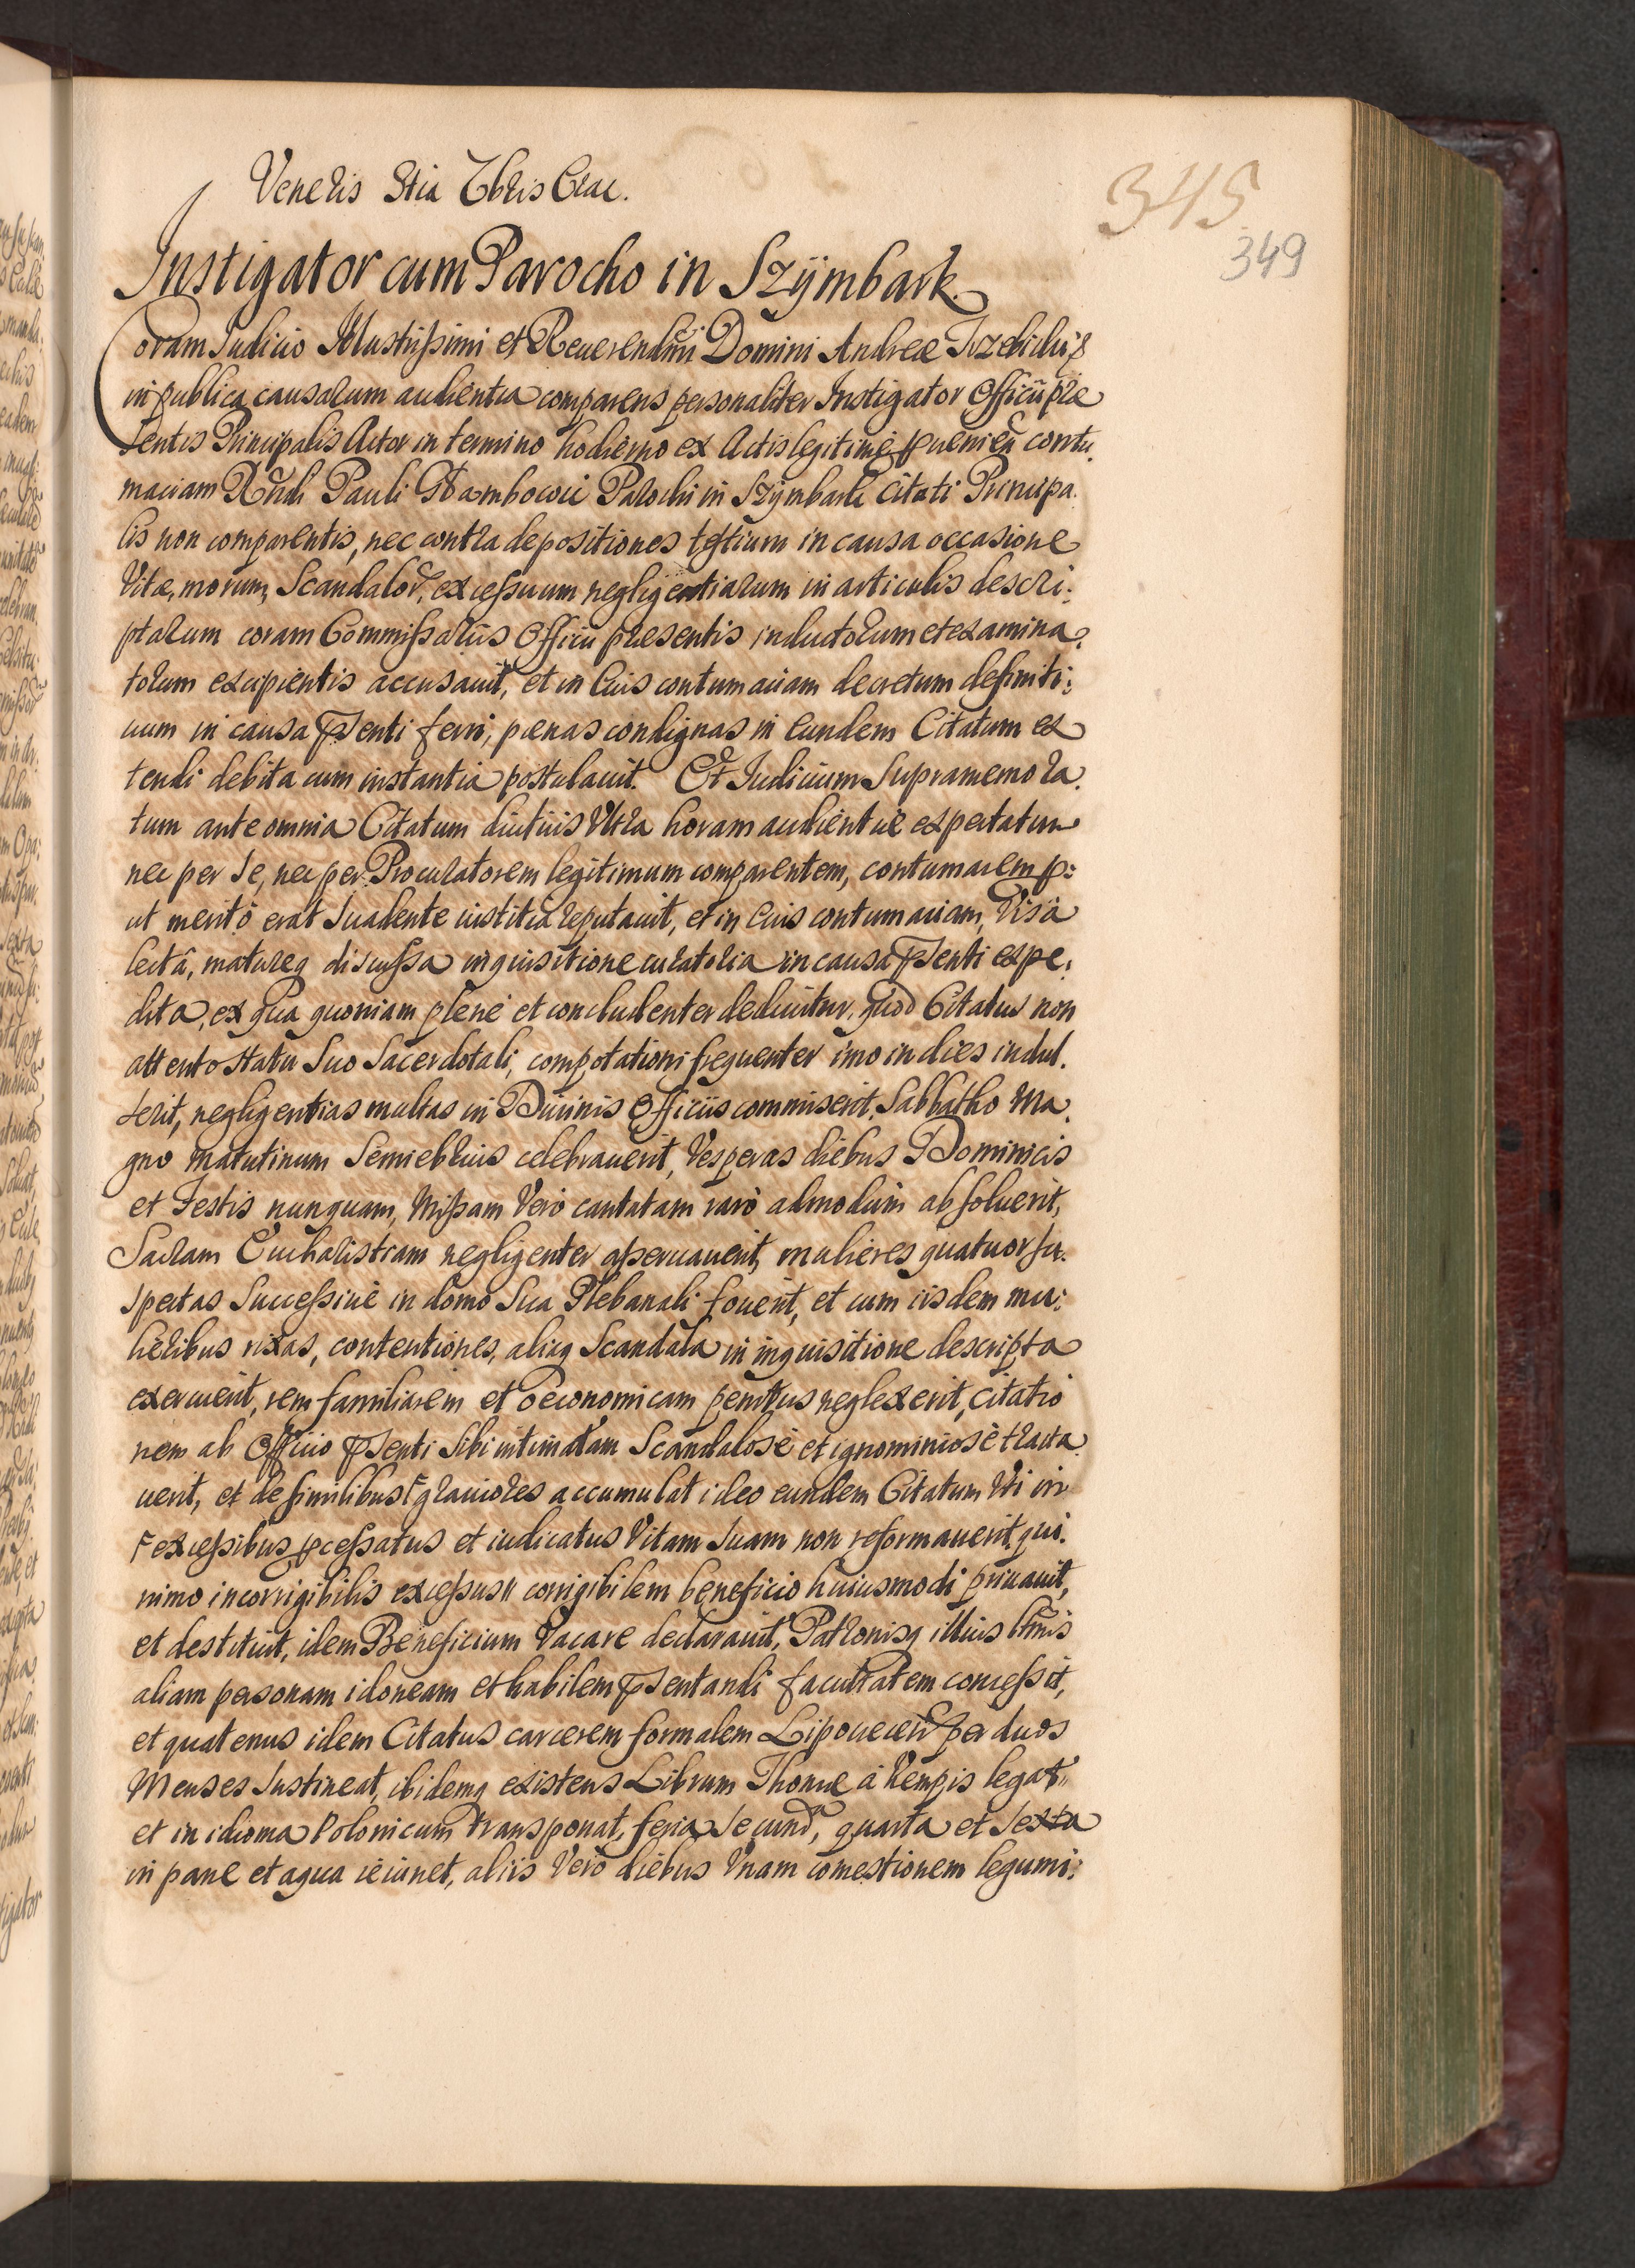 Veneris 9tia Xbris Crac.
345
349
Instigator cum Parocho in Szÿmbark.
Coram Iudicio Illustrissimi et Reuerendmi Domini Andreæ Trzebicki
in publica causarum audientia comparens personaliter Instigator Officii præ
sentis Principalis Actor in termino hodierno ex Actis legitimè contu,
maciam Rndi Pauli Parochi in Szÿmbark Citati Principa,
lis non comparentis, nec contra depositiones testium in causa occasione
Vitæ, morum, Scandalor, excessuum negligentiarum in articulis descri:
ptarum coram Commissariis Officii præsentis inductorum et examina,
torum excipientis accusauit, et in Eius contumaciam decretum definiti:
uum in causa psenti ferri, pœnas condignas in eundem Citatum ex
tendi debita cum instantia postulauit. Et Iudicium Supramemora,
tum ante omnia Citatum diutius Vltra horam audientiæ expectatum
nec per se, nec per Procuratorem legitimum comparentem, contumacem p:
ut meritò erat suadente iustitia reputauit, et in Eius contumaciam, Visa
lectâ, matureq discussa inquisitione curatoria in causa psenti expe,
dita, ex qua quoniam plenè et concludenter deducitur, quod Citatus non
attento statu suo Sacerdotali, compotationi frequenter imo in dies indul,
serit, negligentias multas in Diuinis Officiis commiserit, Sabbatho Ma,
gno Matutinum Semiebrius celebrauerit, Vesperas diebus Dominicis
et Festis nunquam, Missam Verò cantatam rarò admodum absoluerit,
Sacram Eucharistiam negligenter asseruauerit, mulieres quatuor su,
spectas Successiuè in domo Sua Plebanali fouerit, et cum iisdem mu:
lieribus rixas, contentiones, aliaq Scandala in inquisitione descripta
exercuerit, rem familiarem et œconomicam penitus neglexerit, citatio
nem ab Officio psenti Sibi intimatam Scandalosè et ignominiosè tracta
uerit, et de similibus Γ grauiores accumulat ideo eundem Citatum Vti in
Γ excessibus pcessatus et iudicatus Vitam suam non reformauerit, qui,
nimo incorrigibilis excessus corrigibilem beneficio huiusmodi priuauit,
et destituit, idem Beneficium Vacare declarauit, Patronisq illius
aliam personam idoneam et habilem psentandi facultatem concessit,
et quatenus idem Citatus carcerem formalem Lipouecen per duos
Menses Sustineat, ibidemq existens Librum Thomæ à Kempis legat
et in idioma Polonicum transponat, feria Secund, quarta et Sexta
in pane et aqua ieiunet, aliis Verò diebus Vnam comestionem legumi: